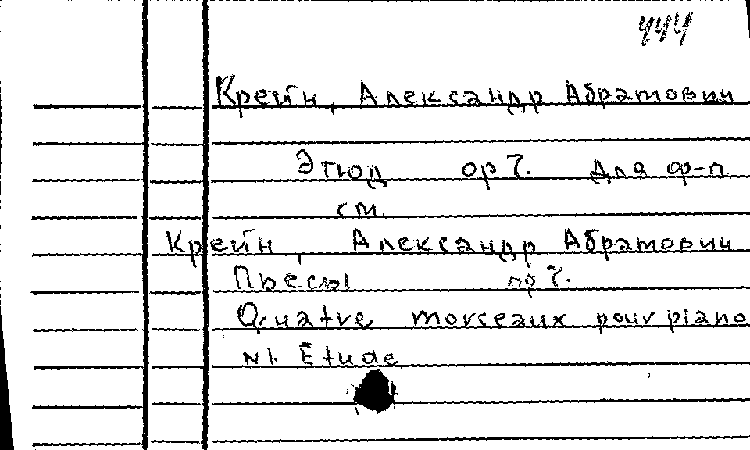 444
Крейн, Александр Абрамович
Этюд ор 7. для ф-п
см.
Крейн, Александр Абрамович
Пьесы ор 7.
Quatre morceaux pour piano
N1. Étude